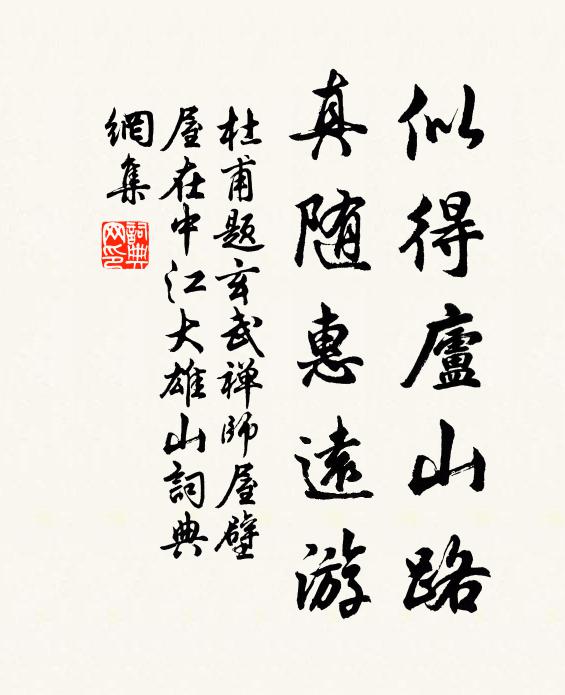 似得廬山路
真随惠遠游
杜甫题玄武禅師屋壁
屋在中江大雄山詞典
網集
詞典
网印